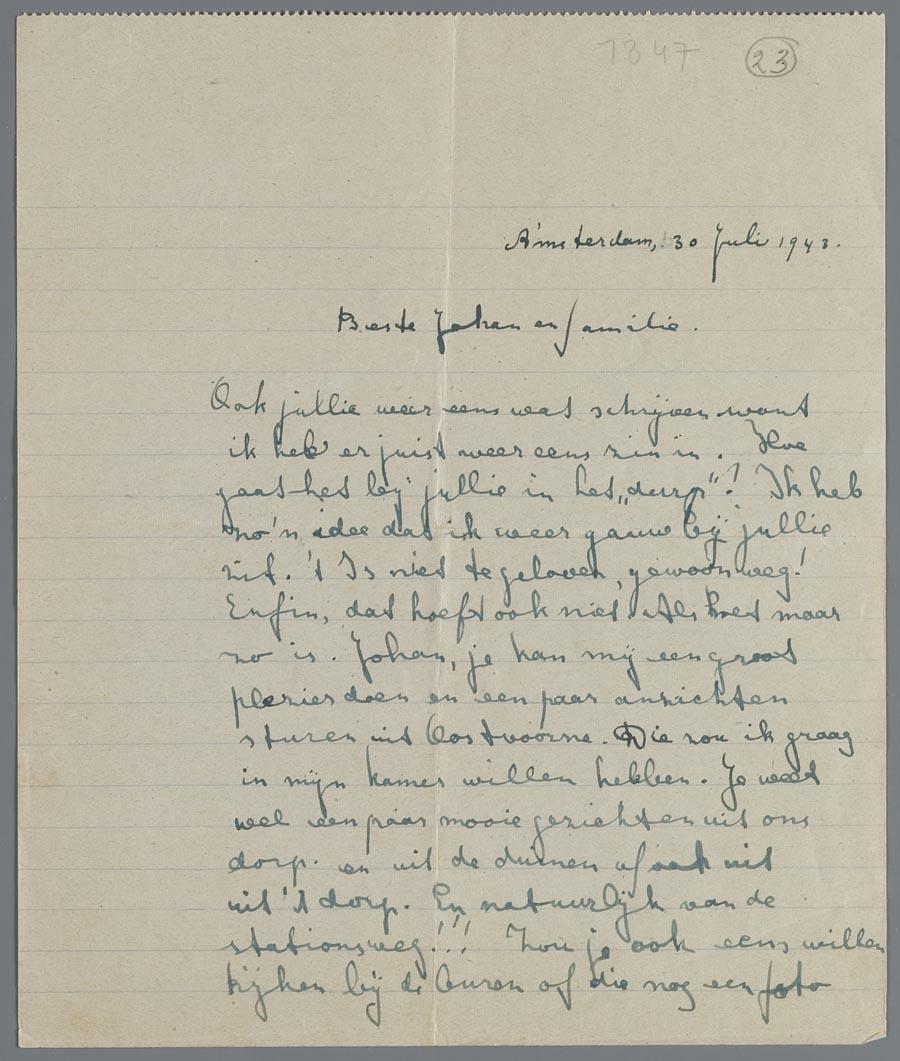 1347 23
A'msterdam, 30 Juli 1943.
Beste Johan en familie.
Ook jullie weer eens wat schrijven want
ik heb er juist weer eens zin in. Hoe
gaat het bij jullie in het „durp"? Ik heb
zo'n idee dat ik weer gauw bij jullie
zit. 't Is niet te geloven, gewoonweg!
Enfin, dat hoeft ook niet. Als het maar
zo is. Johan, je kan mij een groot
plezier doen en een paar anzichten
sturen uit Oostvoorne. Die zou ik graag
in mijn kamer willen hebben. Je weet
wel een paar mooie gezichten uit ons
dorp. en uit de duinen of ook uit
uit 't dorp. En natuurlijk van de
stationsweg!!! Zou je ook eens willen
kijken bij de buren of die nog een foto